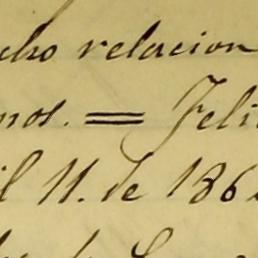 cho relacion
nos. = Feli
il 11. de 186